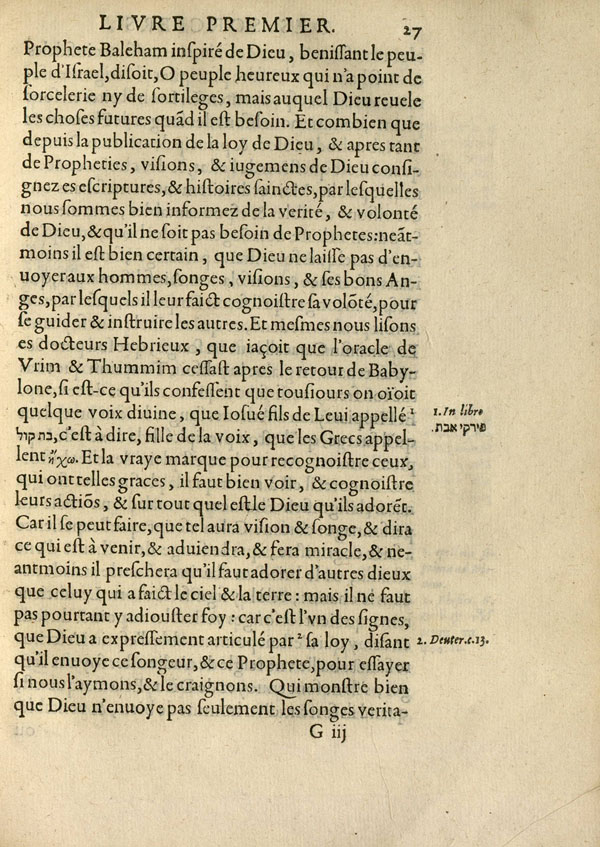 LIVRE PREMIER. 27
Prophete Baleham inſpiré de Dieu, beniſſant le peu-
ple d'Iſrael, diſoit, O peuple heureux qui n'a point de
ſorcelerie ny de ſortileges, mais auquel Dieu reuele
les choſes futures quãd il eſt beſoin. Et combien que
depuis la publication de la loy de Dieu, & apres tant
de Propheties, viſions, & iugemens de Dieu conſi-
gnez es eſcriptures, & hiſtoires ſainctes, par leſquelles
nous ſommes bien informez de la verité, & volonté
de Dieu, & qu'il ne ſoit pas beſoin de Prophetes: neãt-
moins il eſt bien certain, que Dieu ne laiſſe pas d'en-
uoyer aux hommes, ſonges, viſions, & ſes bons An-
ges, par leſquels il leur faict cognoiſtre ſa volõté, pour
ſe guider & inſtruire les autres. Et meſmes nous liſons
es docteurs Hebrieux, que iaçoit que l'oracle de
Vrim & Thummim ceſſaſt apres le retour de Baby-
lone, ſi eſt-ce qu'ils confeſſent que touſiours on oïoit
quelque voix diuine, que Ioſué fils de Leui appellé ¹
בת קול, c'eſt à dire, fille de la voix, que les Grecs appel-
lent ἤχω. Et la vraye marque pour recognoiſtre ceux,
qui ont telles graces, il faut bien voir, & cognoiſtre
leurs actiõs, & ſur tout quel eſt le Dieu qu'ils adorẽt.
Car il ſe peut faire, que tel aura viſion & ſonge, & dira
ce qui eſt à venir, & aduiendra, & fera miracle, & ne-
antmoins il preſchera qu'il faut adorer d'autres dieux
que celuy qui a faict le ciel & la terre: mais il ne faut
pas pourtant y adiouſter foy: car c'eſt l'vn des ſignes,
que Dieu a expreſſement articulé par ² ſa loy, diſant
qu'il enuoye ce ſongeur, & ce Prophete, pour eſſayer
ſi nous l'aymons, & le craignons. Qui monſtre bien
que Dieu n'enuoye pas ſeulement les ſonges verita-
G iij
1. In libro
פירקי אבת.
2. Deuter. c. 13.